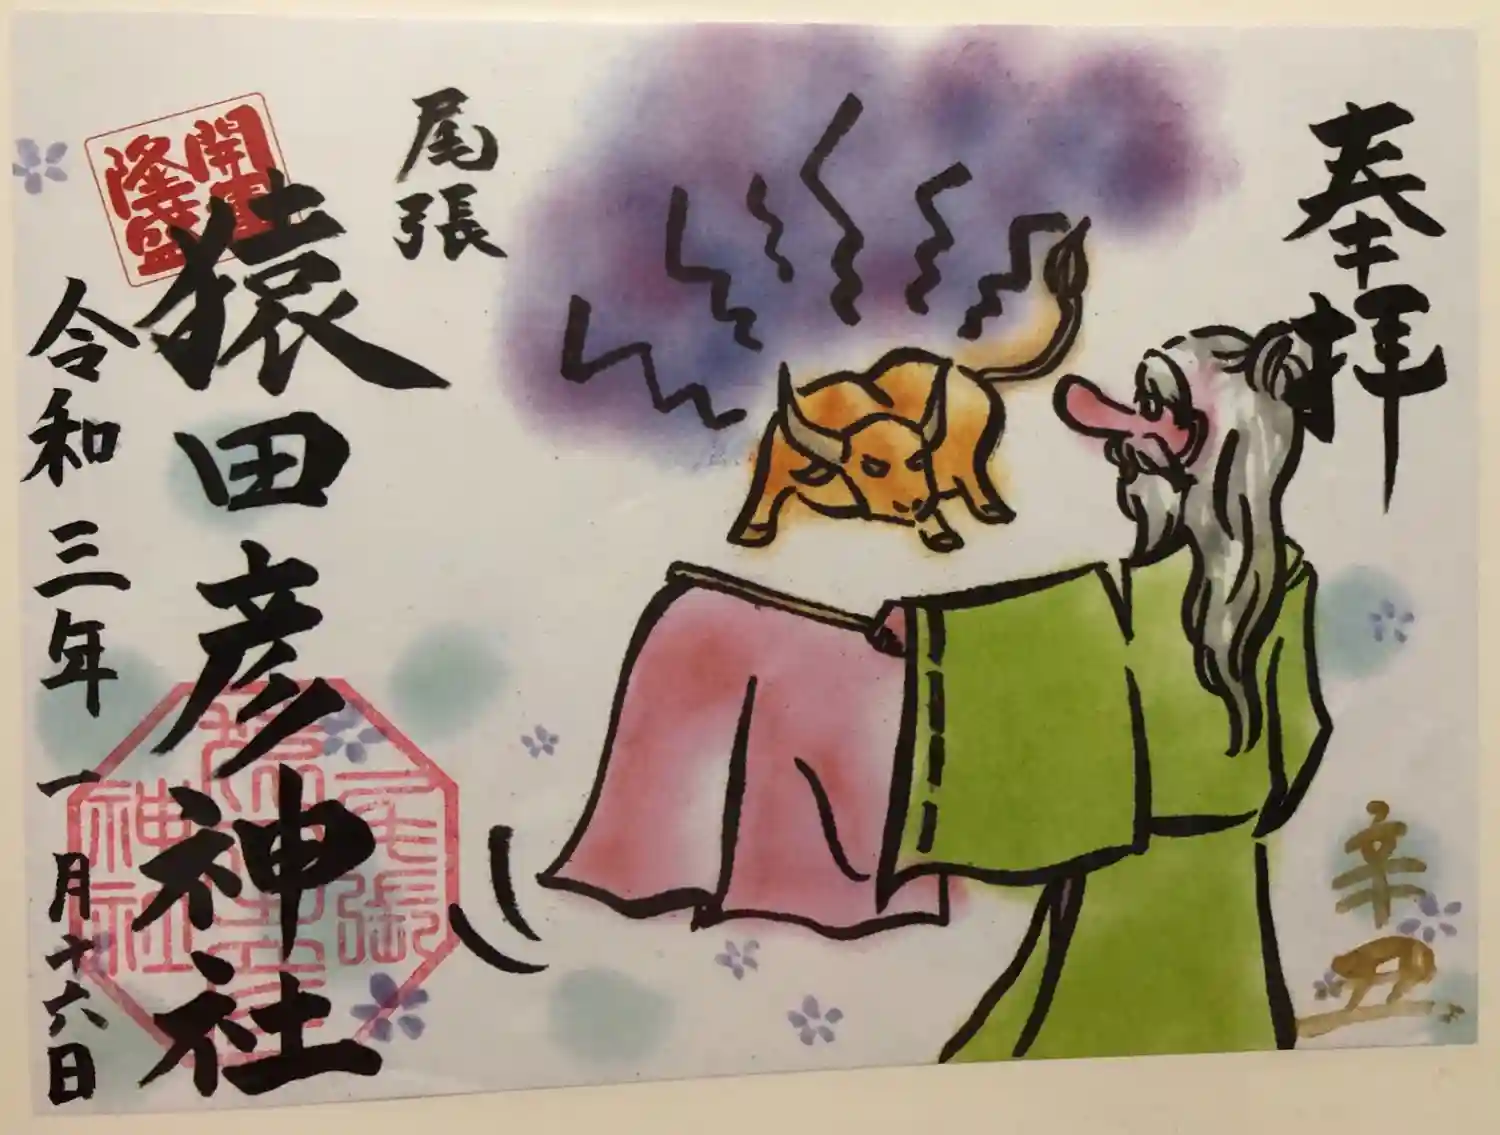 奉拝
辛丑
尾張
猿田彦神社
開運
隆盛
尾張
神社
令和三年一月十六日